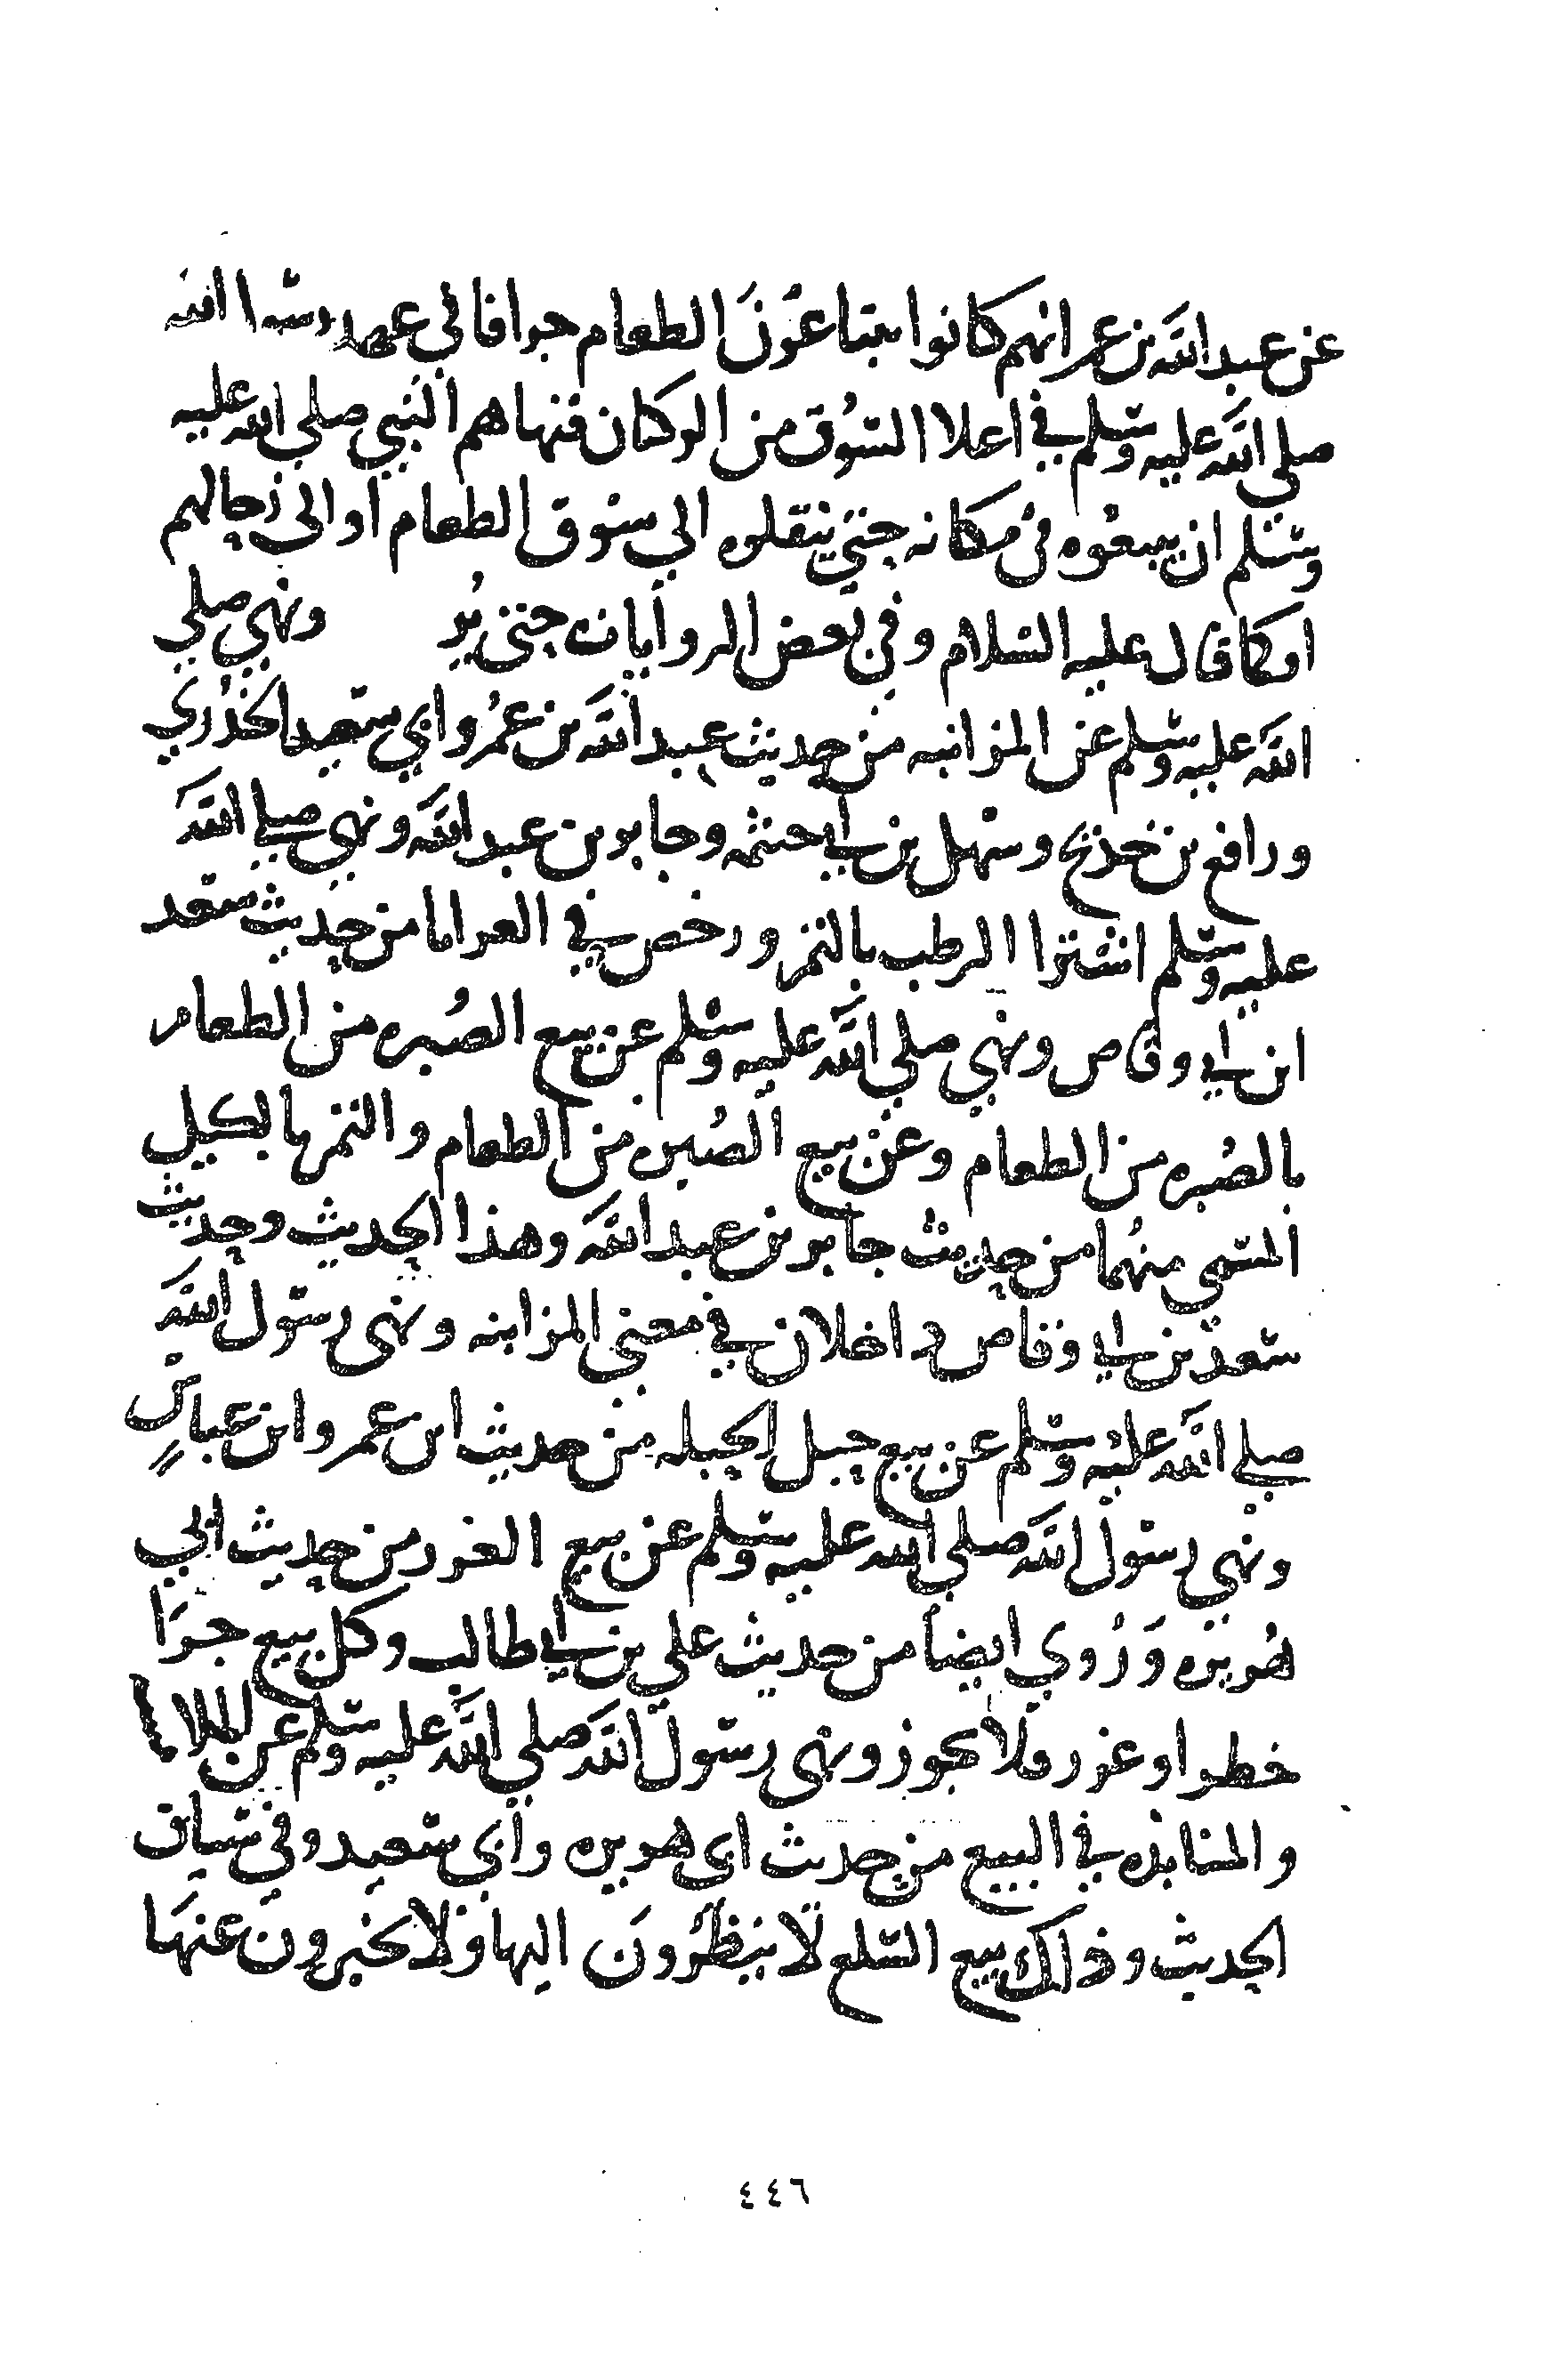 عن عبد الله بن عمر انهم كانوا يبتاعون الطعام جزافا في عهد رسول الله
صلي الله عليه وسلم في اعلا السوق من الركبان فنهاهم النبي صلي الله عليه
وسلم ان يبيعوه في مكانه حتي ينقلوه الي سوق الطعام او الي رحالهم
او كما قال عليه السلام وفي بعض الروايات حتي يو ونهي صلي
الله عليه وسلم عن المزابنه من حديث عبد الله بن عمر وابي سعيد الخدري
ورافع بن خديج وسهل بن ابي حثمه وجابر بن عبد الله ونهي صلي الله
عليه وسلم اشترا الرطب بالتمر ورخص في العرايا من حديث سعد
ابن ابي وقاص ونهي صلي الله عليه وسلم عن بيع الصبره من الطعام
بالصبره من الطعام وعن بيع الصبره من الطعام والتمر بالكيل
المسمي منهما من حديث جابر بن عبد الله وهذا الحديث وحديث
سعد بن ابي وقاص داخلان في معني المزابنه ونهى رسول الله
صلي الله عليه وسلم عن بيع حبل الحبله من حديث ابن عمر وابن عباس
ونهي رسول الله صلي الله عليه وسلم عن بيع الغرر من حديث ابي
هريره وروي ايضا من حديث علي بن ابي طالب وكل بيع جرا
خطرا وغرر فلا يجوز ونهى رسول الله صلي الله عليه وسلم عن
والمنابذه في البيع من حديث ابي هريره وابي سعيد وفي سياق
الحديث وذالك بيع السلع لا ينظرون اليها ولا يخبرون عنها
٤٤٦